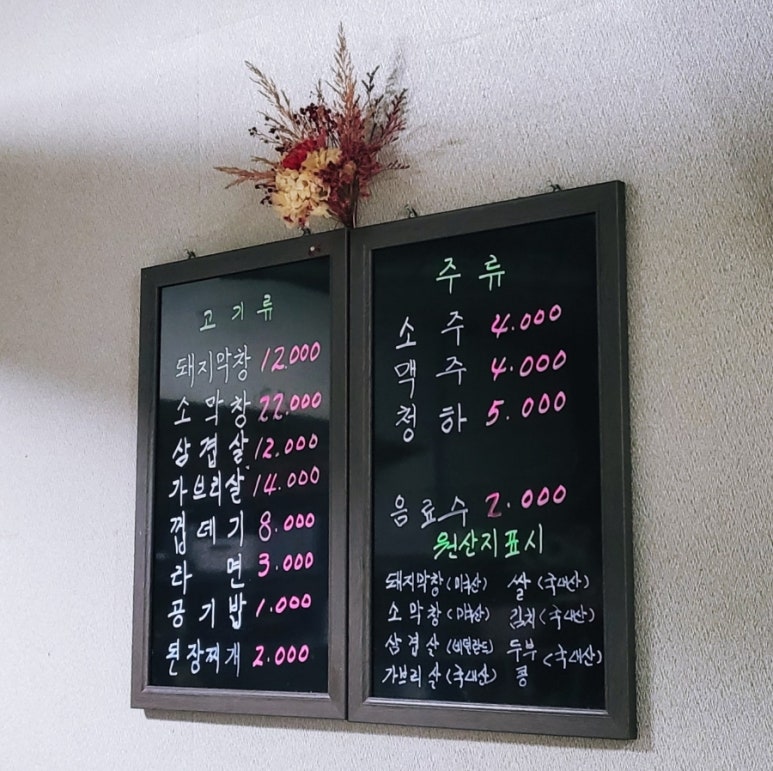 고기류
돼지막창 12.000
소막창 22.000
삼겹살 12.000
가브리살 14.000
껍데기 8.000
라면 3.000
공기밥 1.000
된장찌개 2.000
주류
소주 4.000
맥주 4.000
청하 5.000
음료수 2.000
원산지표시
돼지막창(미국산) 쌀(국내산)
소막창(미국산) 김치(국내산)
삼겹살(네덜란드) 두부(국내산)
가브리살(국내산) 콩